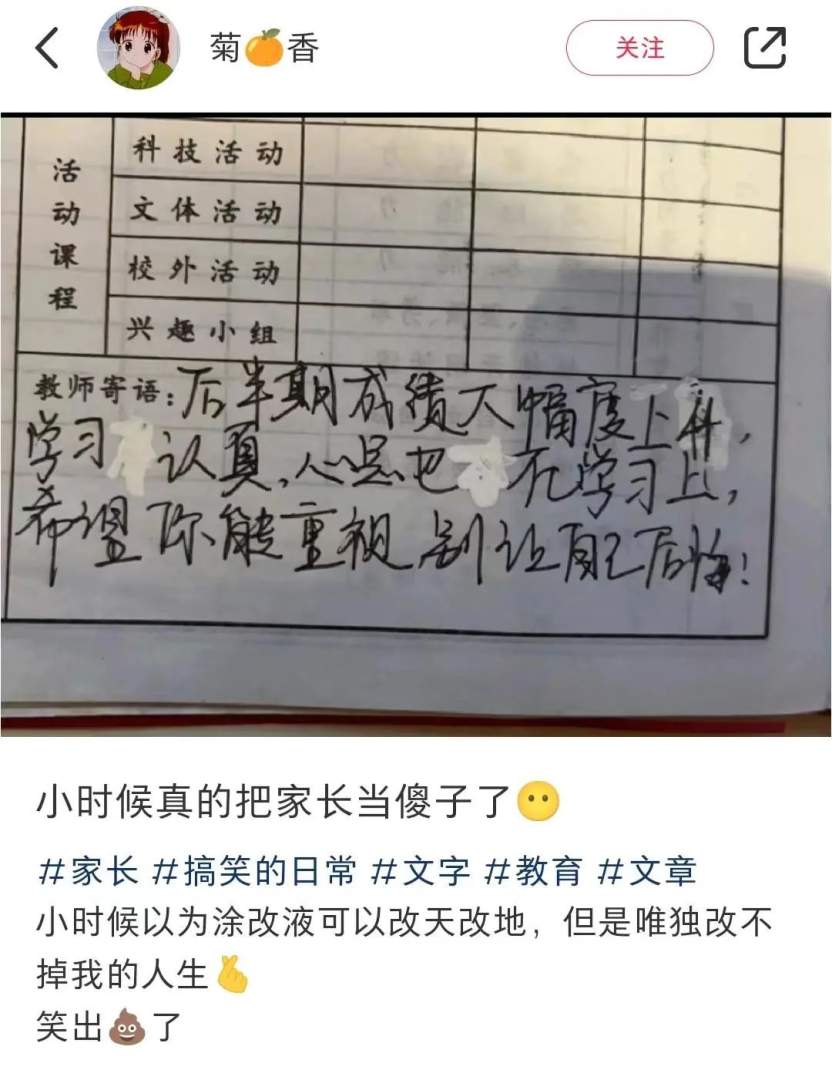 菊🍊香
关注
活动课程
科技活动
文体活动
校外活动
兴趣小组
教师寄语:后半期成绩大幅度上升,
学习 认真,心思也 在学习上,
希望你能重视别让自己后悔!
小时候真的把家长当傻子了😶
#家长 #搞笑的日常 #文字 #教育 #文章
小时候以为涂改液可以改天改地，但是唯独改不
掉我的人生🫰
笑出💩了